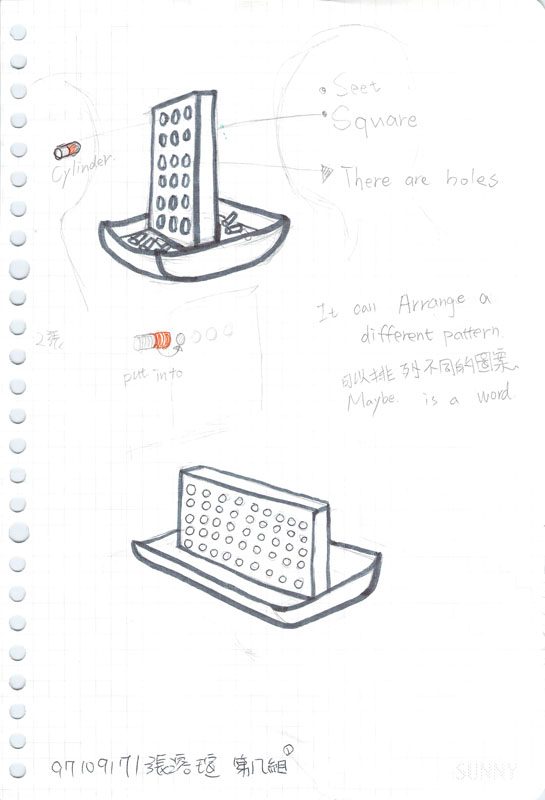 Seet
Square
Cylinder.
There are holes
It can Arrange a
different pattern.
2張
put into
可以排列不同的圖案、
Maybe. is a word.
97109171 張
組
SUNNY